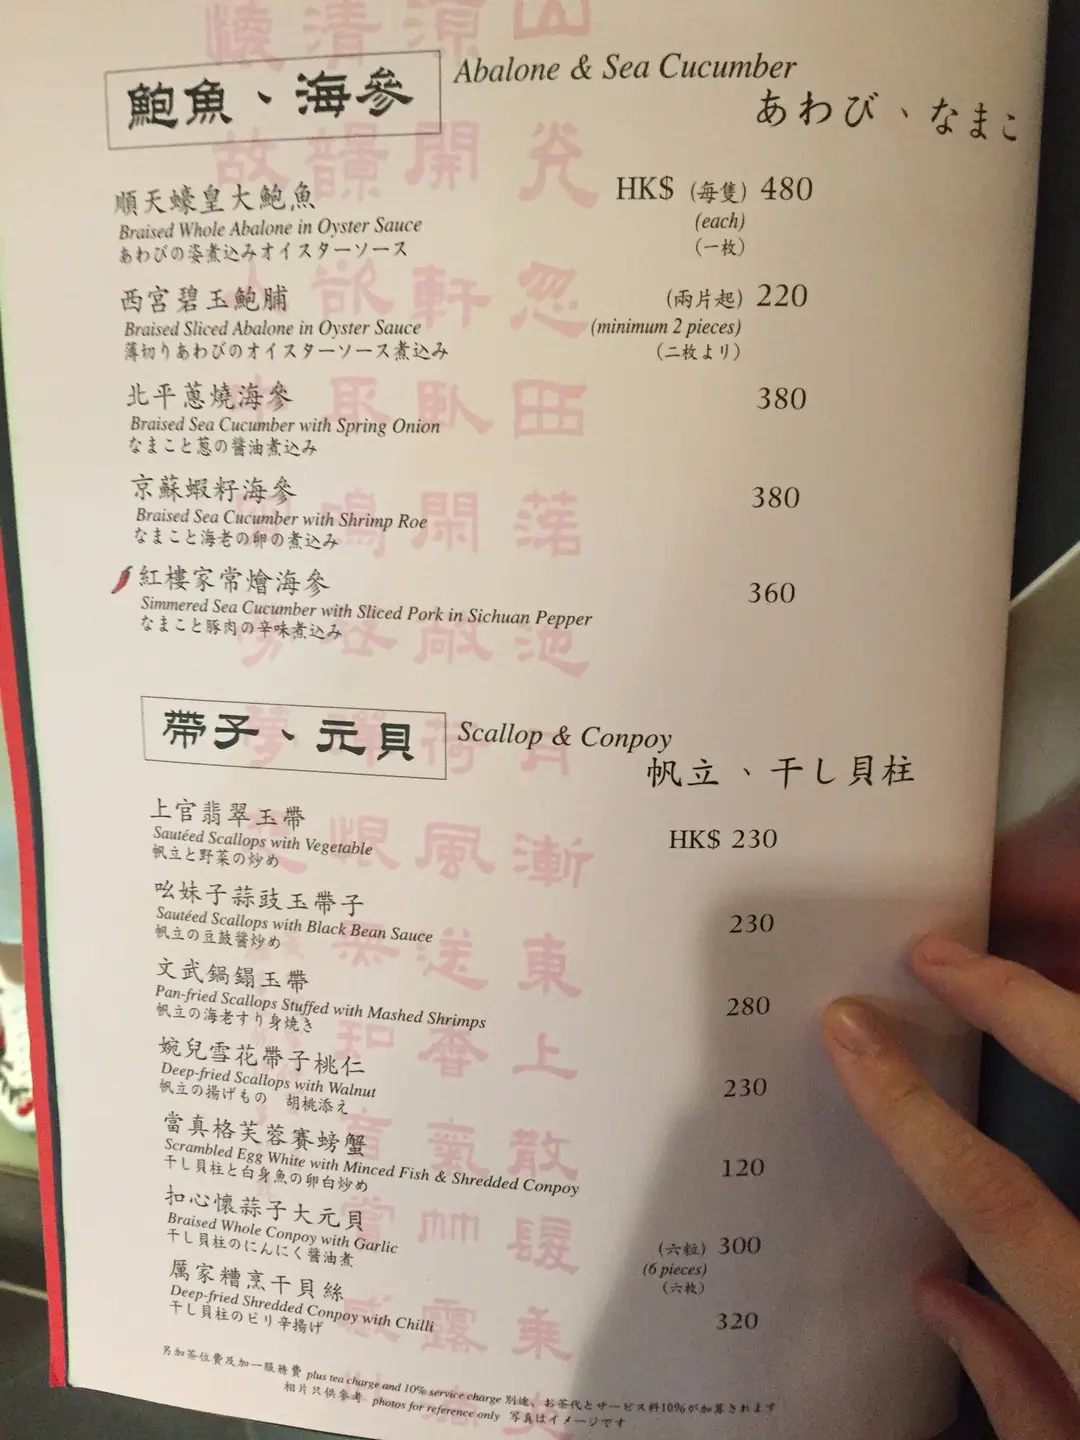 鮑魚、海參
Abalone & Sea Cucumber
あわび、なまこ
順天蠔皇大鮑魚
HK$ (每隻) 480
Braised Whole Abalone in Oyster Sauce
(each)
あわびの姿煮込みオイスターソース
(一枚)
西宮碧玉鮑脯
(兩片起) 220
Braised Sliced Abalone in Oyster Sauce
(minimum 2 pieces)
薄切りあわびのオイスターソース煮込み
(二枚より)
北平蔥燒海參
380
Braised Sea Cucumber with Spring Onion
なまこと葱の醤油煮込み
京蘇蝦籽海參
380
Braised Sea Cucumber with Shrimp Roe
なまこと海老の卵の煮込み
紅樓家常燴海參
360
Simmered Sea Cucumber with Sliced Pork in Sichuan Pepper
なまこと豚肉の辛味煮込み
帶子、元貝
Scallop & Conpoy
帆立、干し貝柱
上官翡翠玉帶
HK$ 230
Sautéed Scallops with Vegetable
帆立と野菜の炒め
吆妹子蒜豉玉帶子
230
Sautéed Scallops with Black Bean Sauce
帆立の豆鼓醬炒め
文武鍋鎉玉帶
280
Pan-fried Scallops Stuffed with Mashed Shrimps
帆立の海老すり身焼き
婉兒雪花帶子桃仁
230
Deep-fried Scallops with Walnut
帆立の揚げもの 胡桃添え
當真格芙蓉賽螃蟹
120
Scrambled Egg White with Minced Fish & Shredded Conpoy
干し貝柱と白身魚の卵白炒め
扣心懷蒜子大元貝
(六粒) 300
Braised Whole Conpoy with Garlic
(6 pieces)
干し貝柱のにんにく醤油煮
(六枚)
厲家糟烹干貝絲
320
Deep-fried Shredded Conpoy with Chilli
干し貝柱のピリ辛揚げ
另加茶位費及加一服務費 plus tea charge and 10% service charge 別途、お茶代とサービス料10%が加算されます
相片只供參考 photos for reference only 写真はイメージです